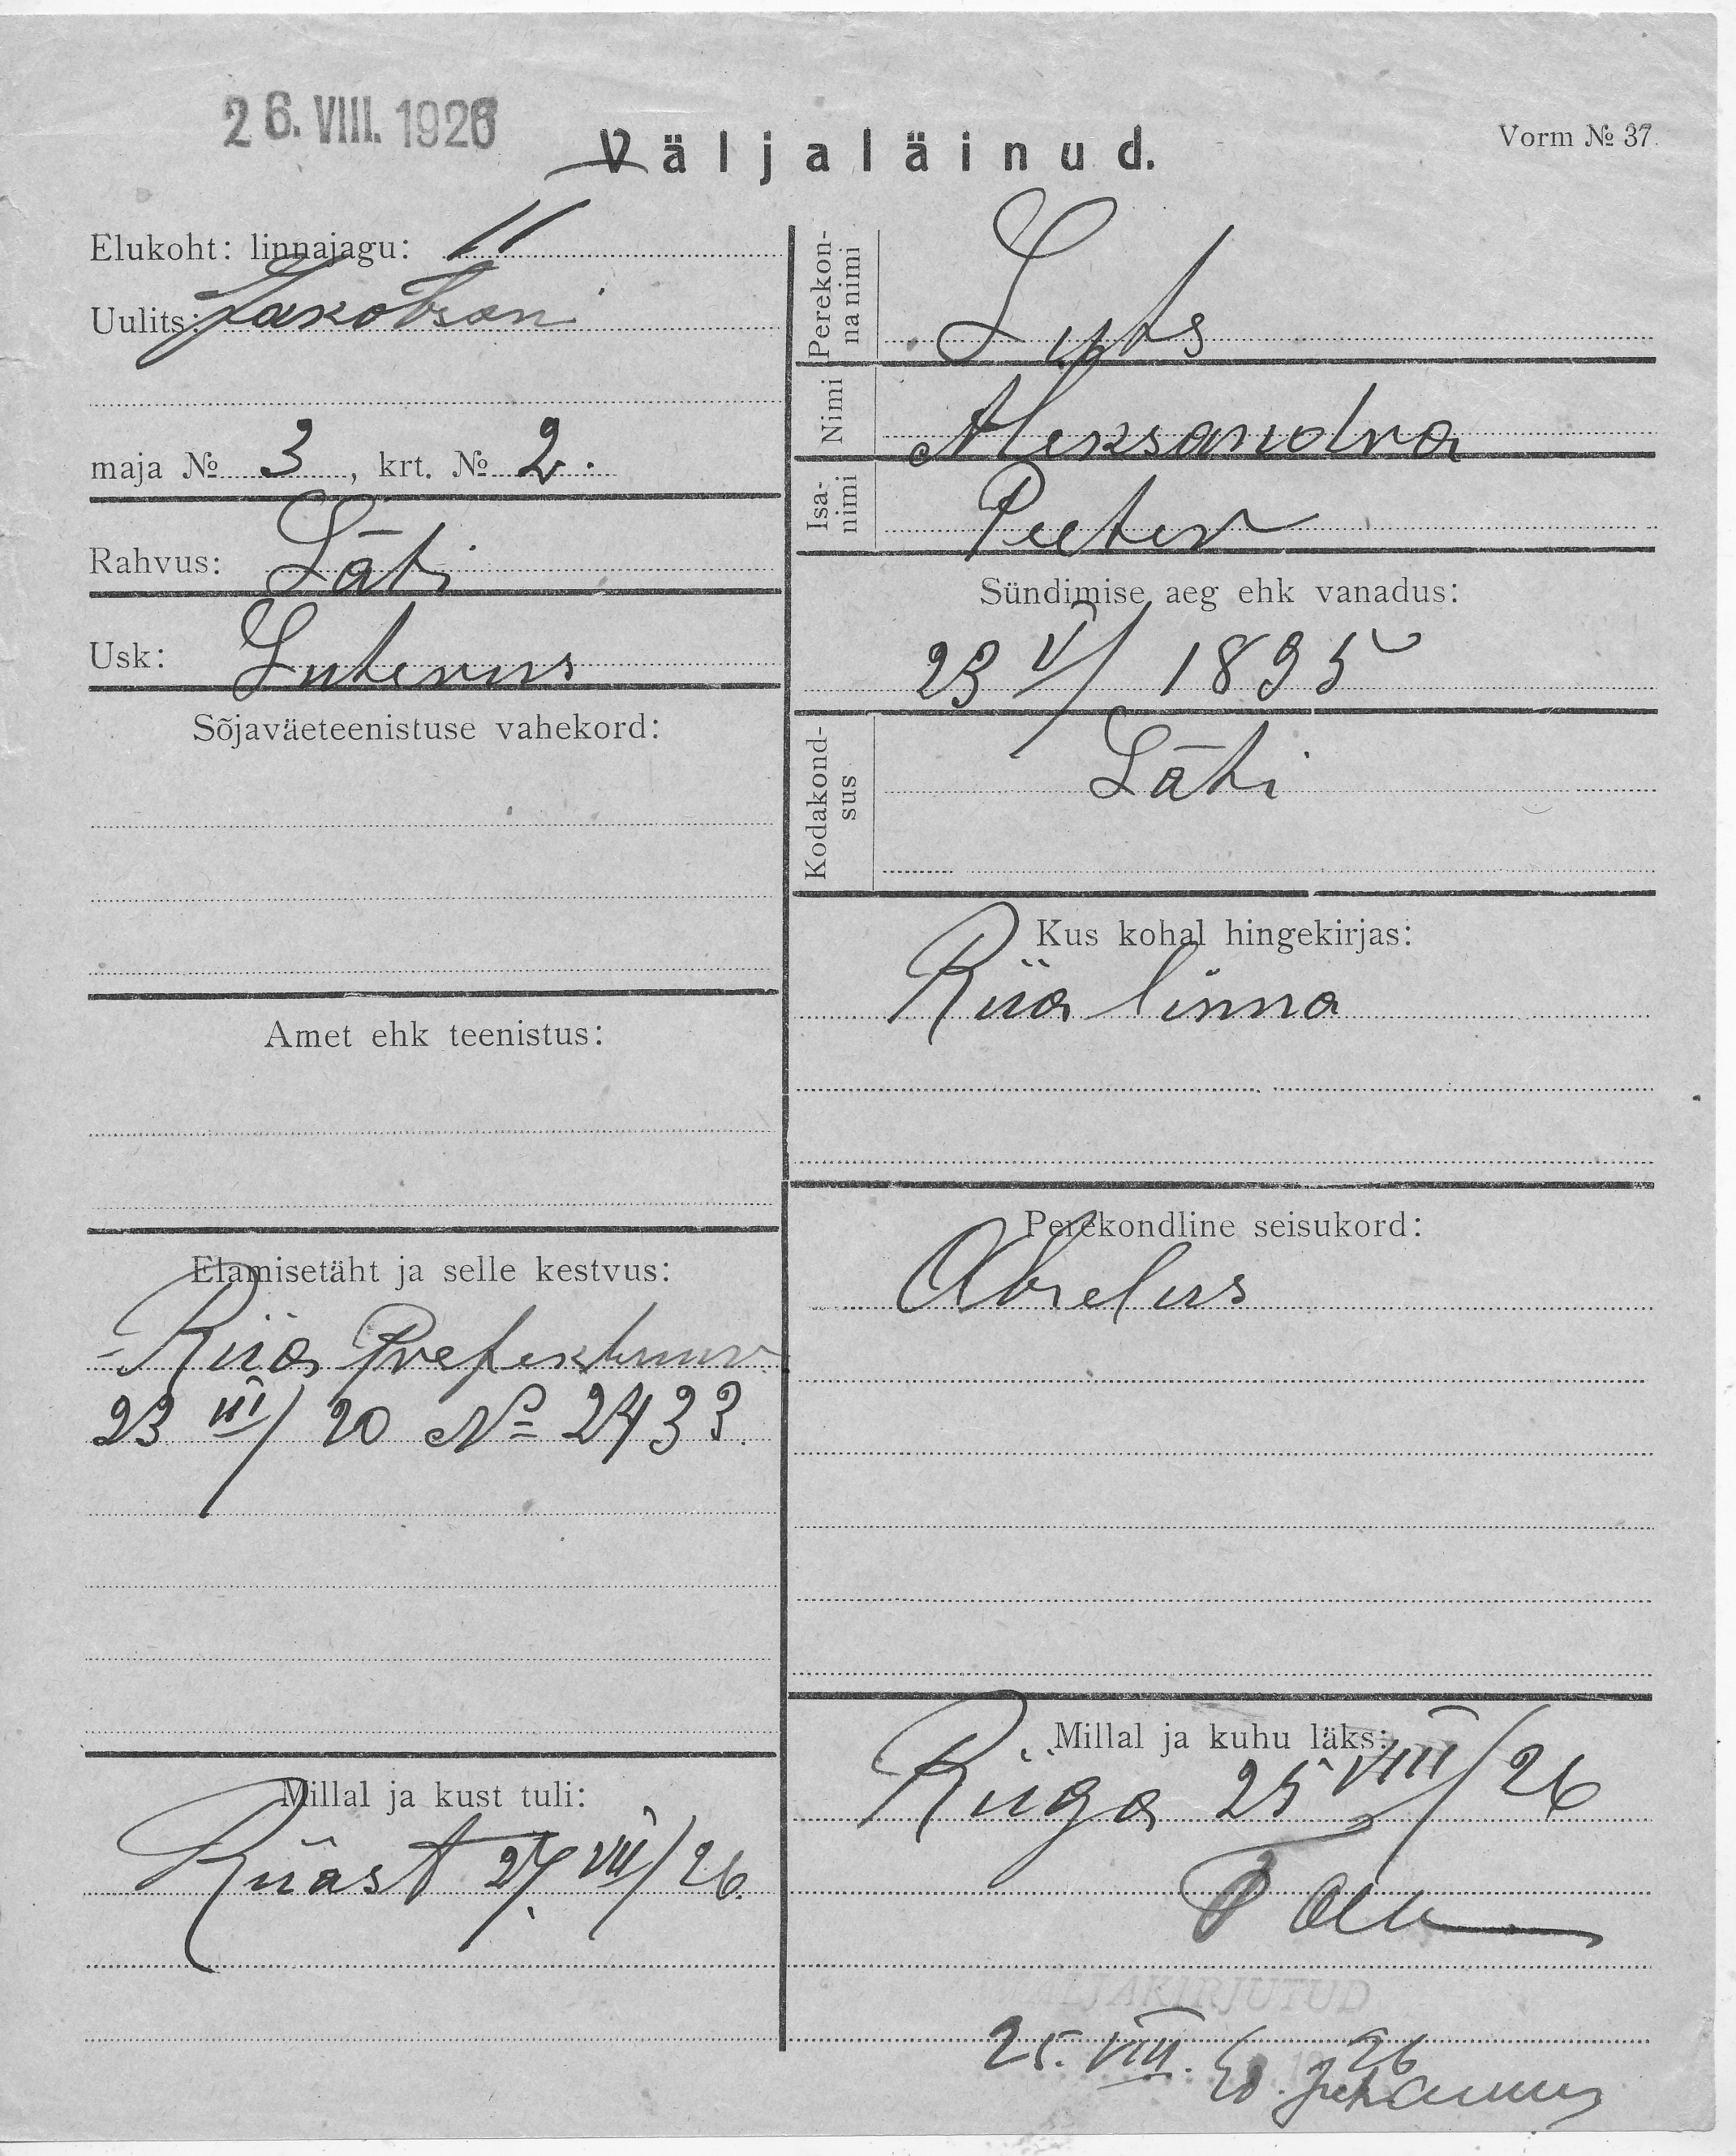 26. VIII. 1926
Väljaläinud.
Vorm № 37.
Elukoht: linnajagu: II
Uulits: Jakobson
maja № 3, krt. № 2.
Rahvus: Läti
Usk: Luterus
Sõjaväeteenistuse vahekord:
Amet ehk teenistus:
Elamisetäht ja selle kestvus:
Riia Prefektuur
23 III/20 № 2433.
Millal ja kust tuli:
Riiast 27. VII/26.
Perekonna nimi
Nimi Aleksandra
Isanimi Peeter
Sündimise aeg ehk vanadus:
23 V/ 1895
Kodakondsus Läti
Kus kohal hingekirjas:
Riia linna
Perekondline seisukord:
Abielus
Millal ja kuhu läks:
Riiga 25 VIII/26
VÄLJAKIRJUTUD
25. VIII. 26